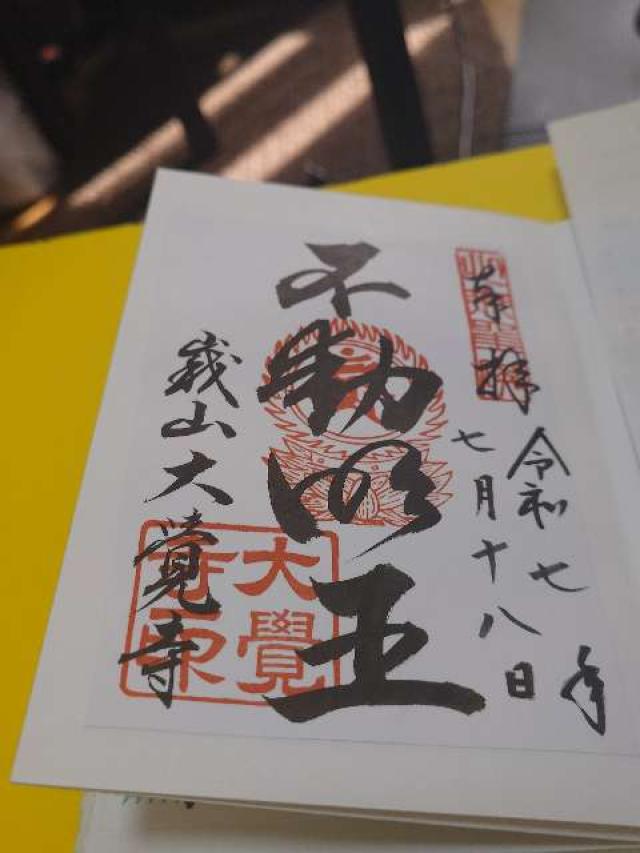 奉拝
令和七年
七月十八日
不動明王
嵯山大覺寺
大覺
寺印